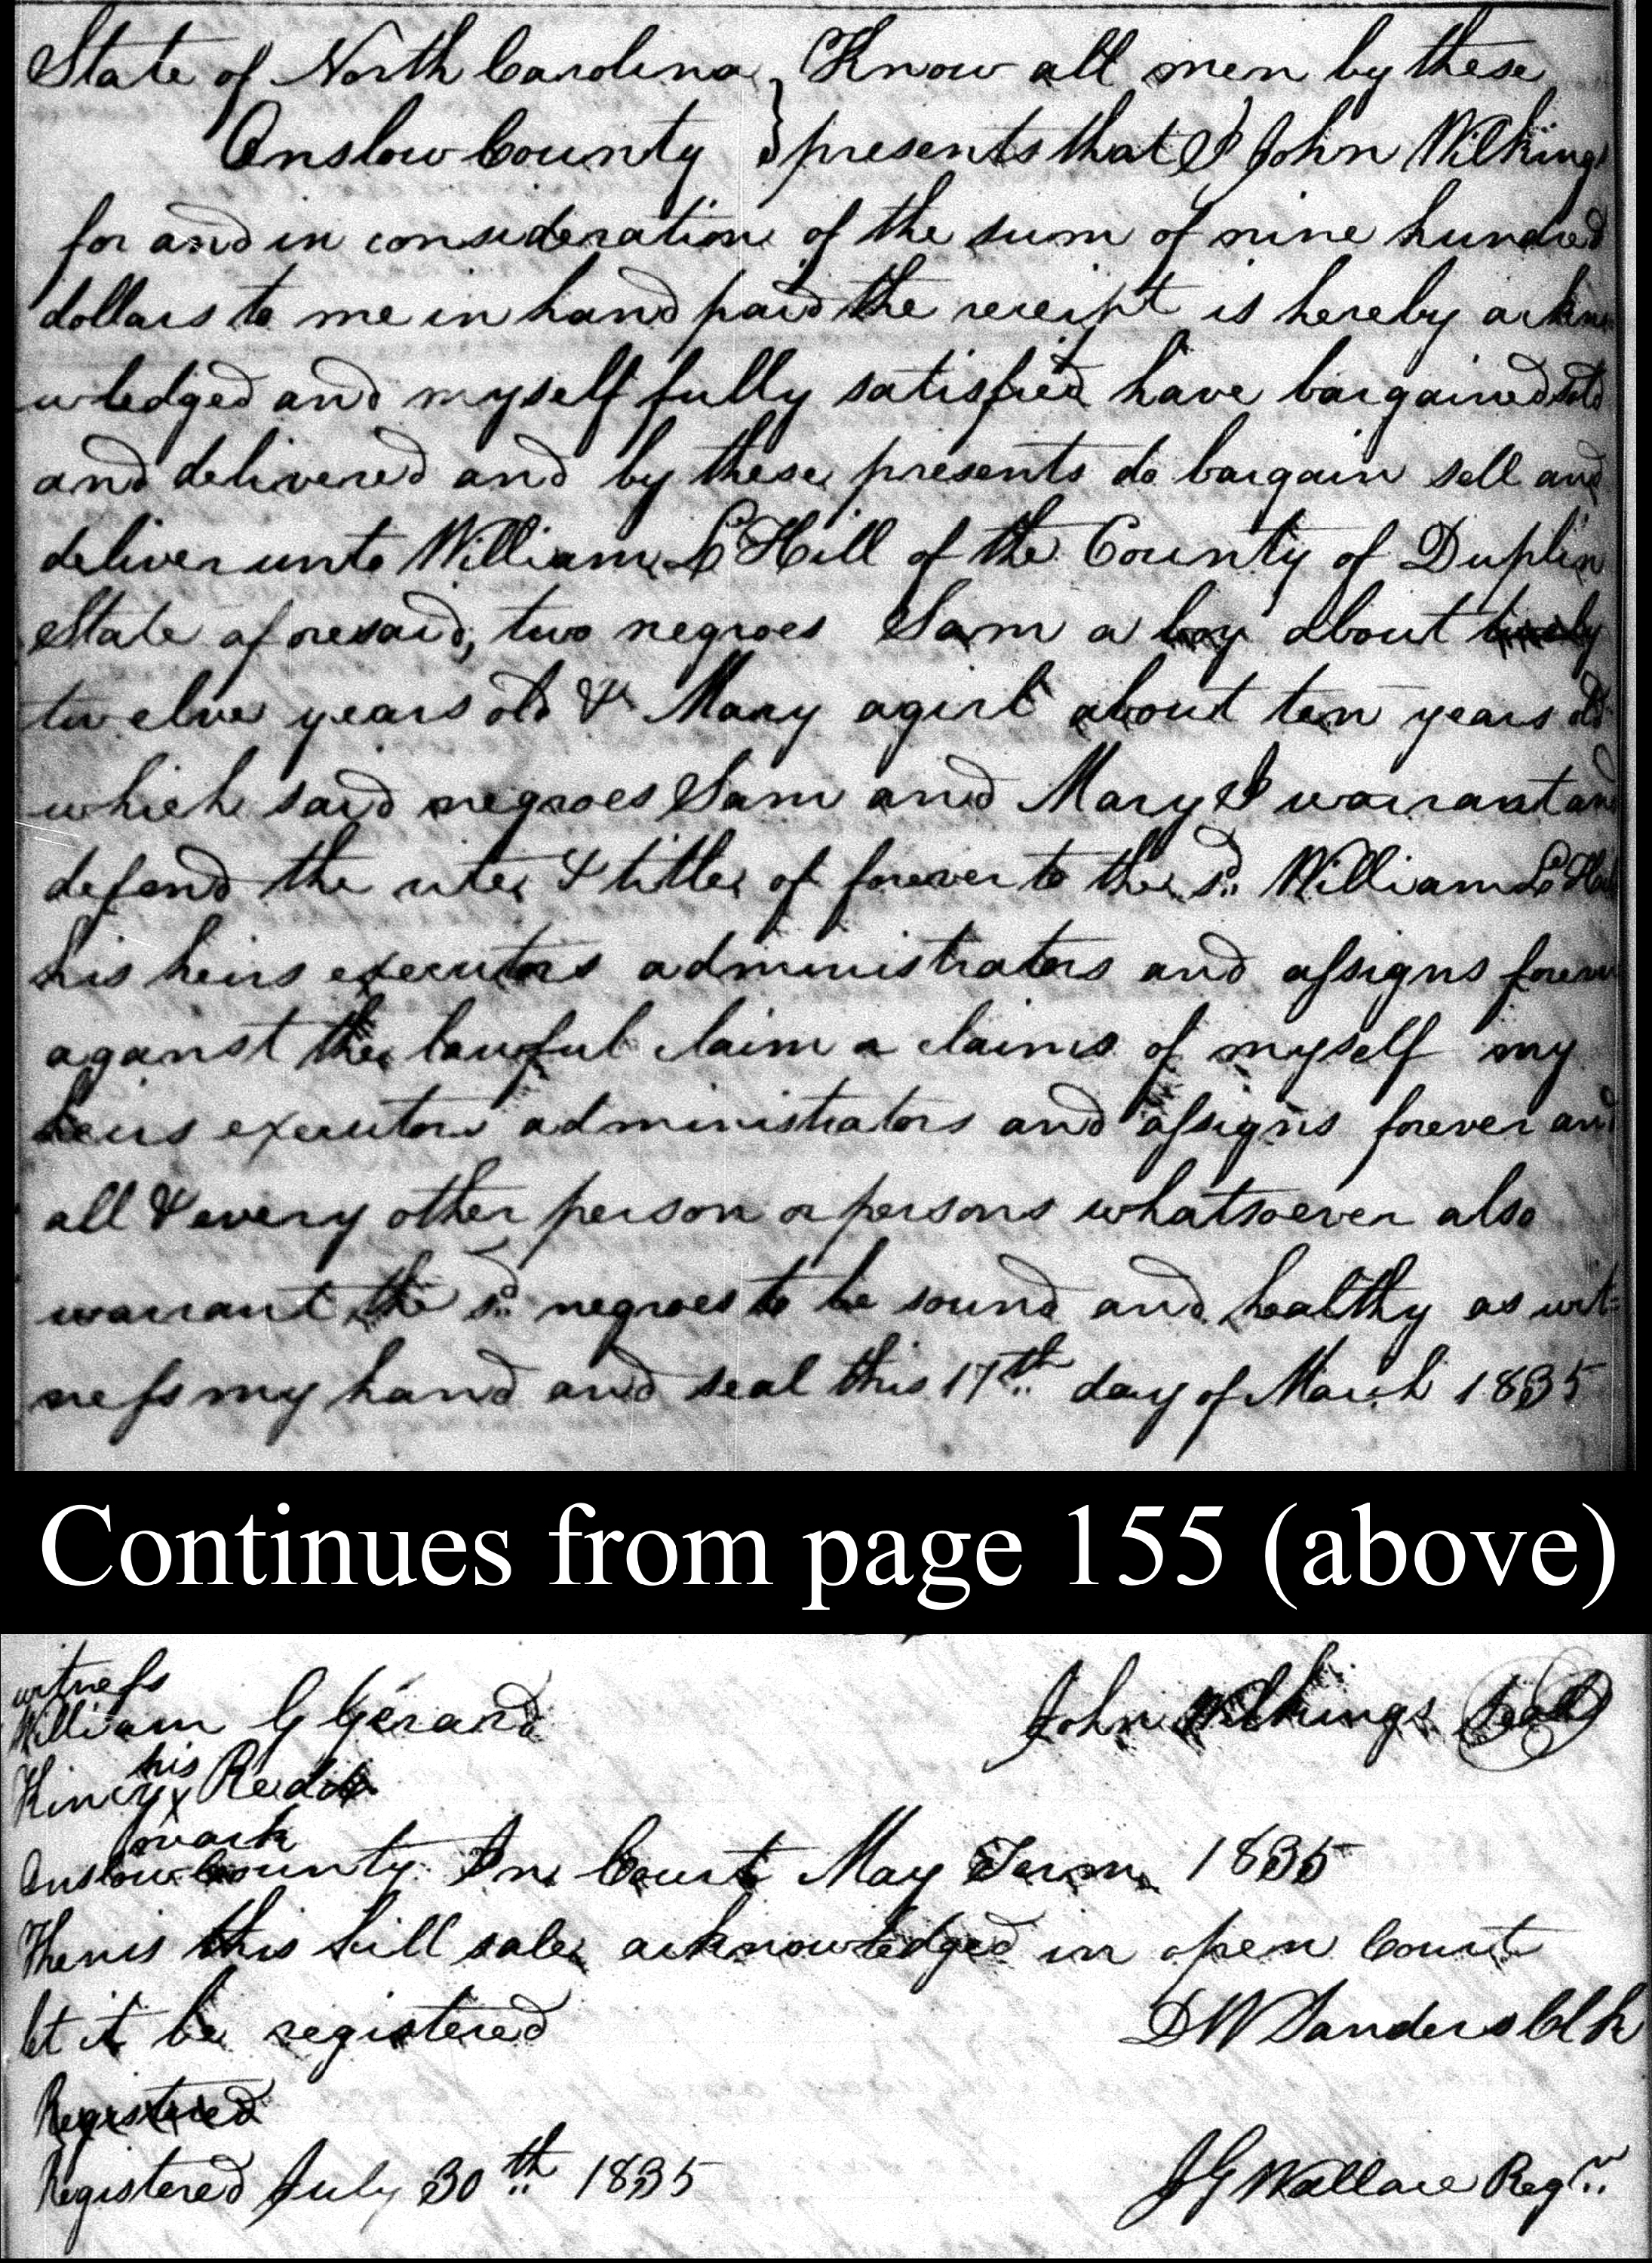 State of North Carolina } Know all men by these
Onslow County } presents that I John Wilkings
for and in consideration of the sum of nine hundred
dollars to me in hand paid the receipt is hereby ackno
wledged and myself fully satisfied have bargained sold
and delivered and by these presents do bargain sell and
deliver unto William L Hill of the County of Duplin
State aforesaid, two negroes Sam a boy about
twelve years old & Mary a girl about ten years old
which said negroes Sam and Mary I warrant and
defend the rite & title of forever to the sd. William L Hill
his heirs executors administrators and assigns forever
aganst the lawful claim a claims of myself my
heirs executors administrators and assigns forever and
all & every other person or persons whatsoever also
warrant the sd. negroes to be sound and healthy as wit=
ness my hand and seal this 17th day of March 1835
Continues from page 155 (above)
witness
William G Gerard John Wilkings Seal
his
Kincy x Redd
mark
Onslow County In Court May Term 1835
Then is this bill sale acknowledged in open Court
let it be registered
D W Sanders Clk
Registered
Registered July 30th 1835 J G Wallace Regr.